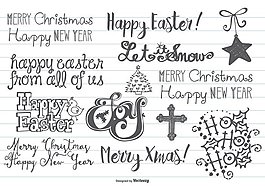 MERRY CHRISTMAS
Happy NEW YEAR
Happy Easter!
Let it Snow
happy easter
from all of us
MERRY CHRISTMAS
Happy NEW YEAR
Happy
Easter
Joy
Merry Christmas
Happy New Year
Merry Xmas!
HO
HO
HO
Designed by Vecteezy